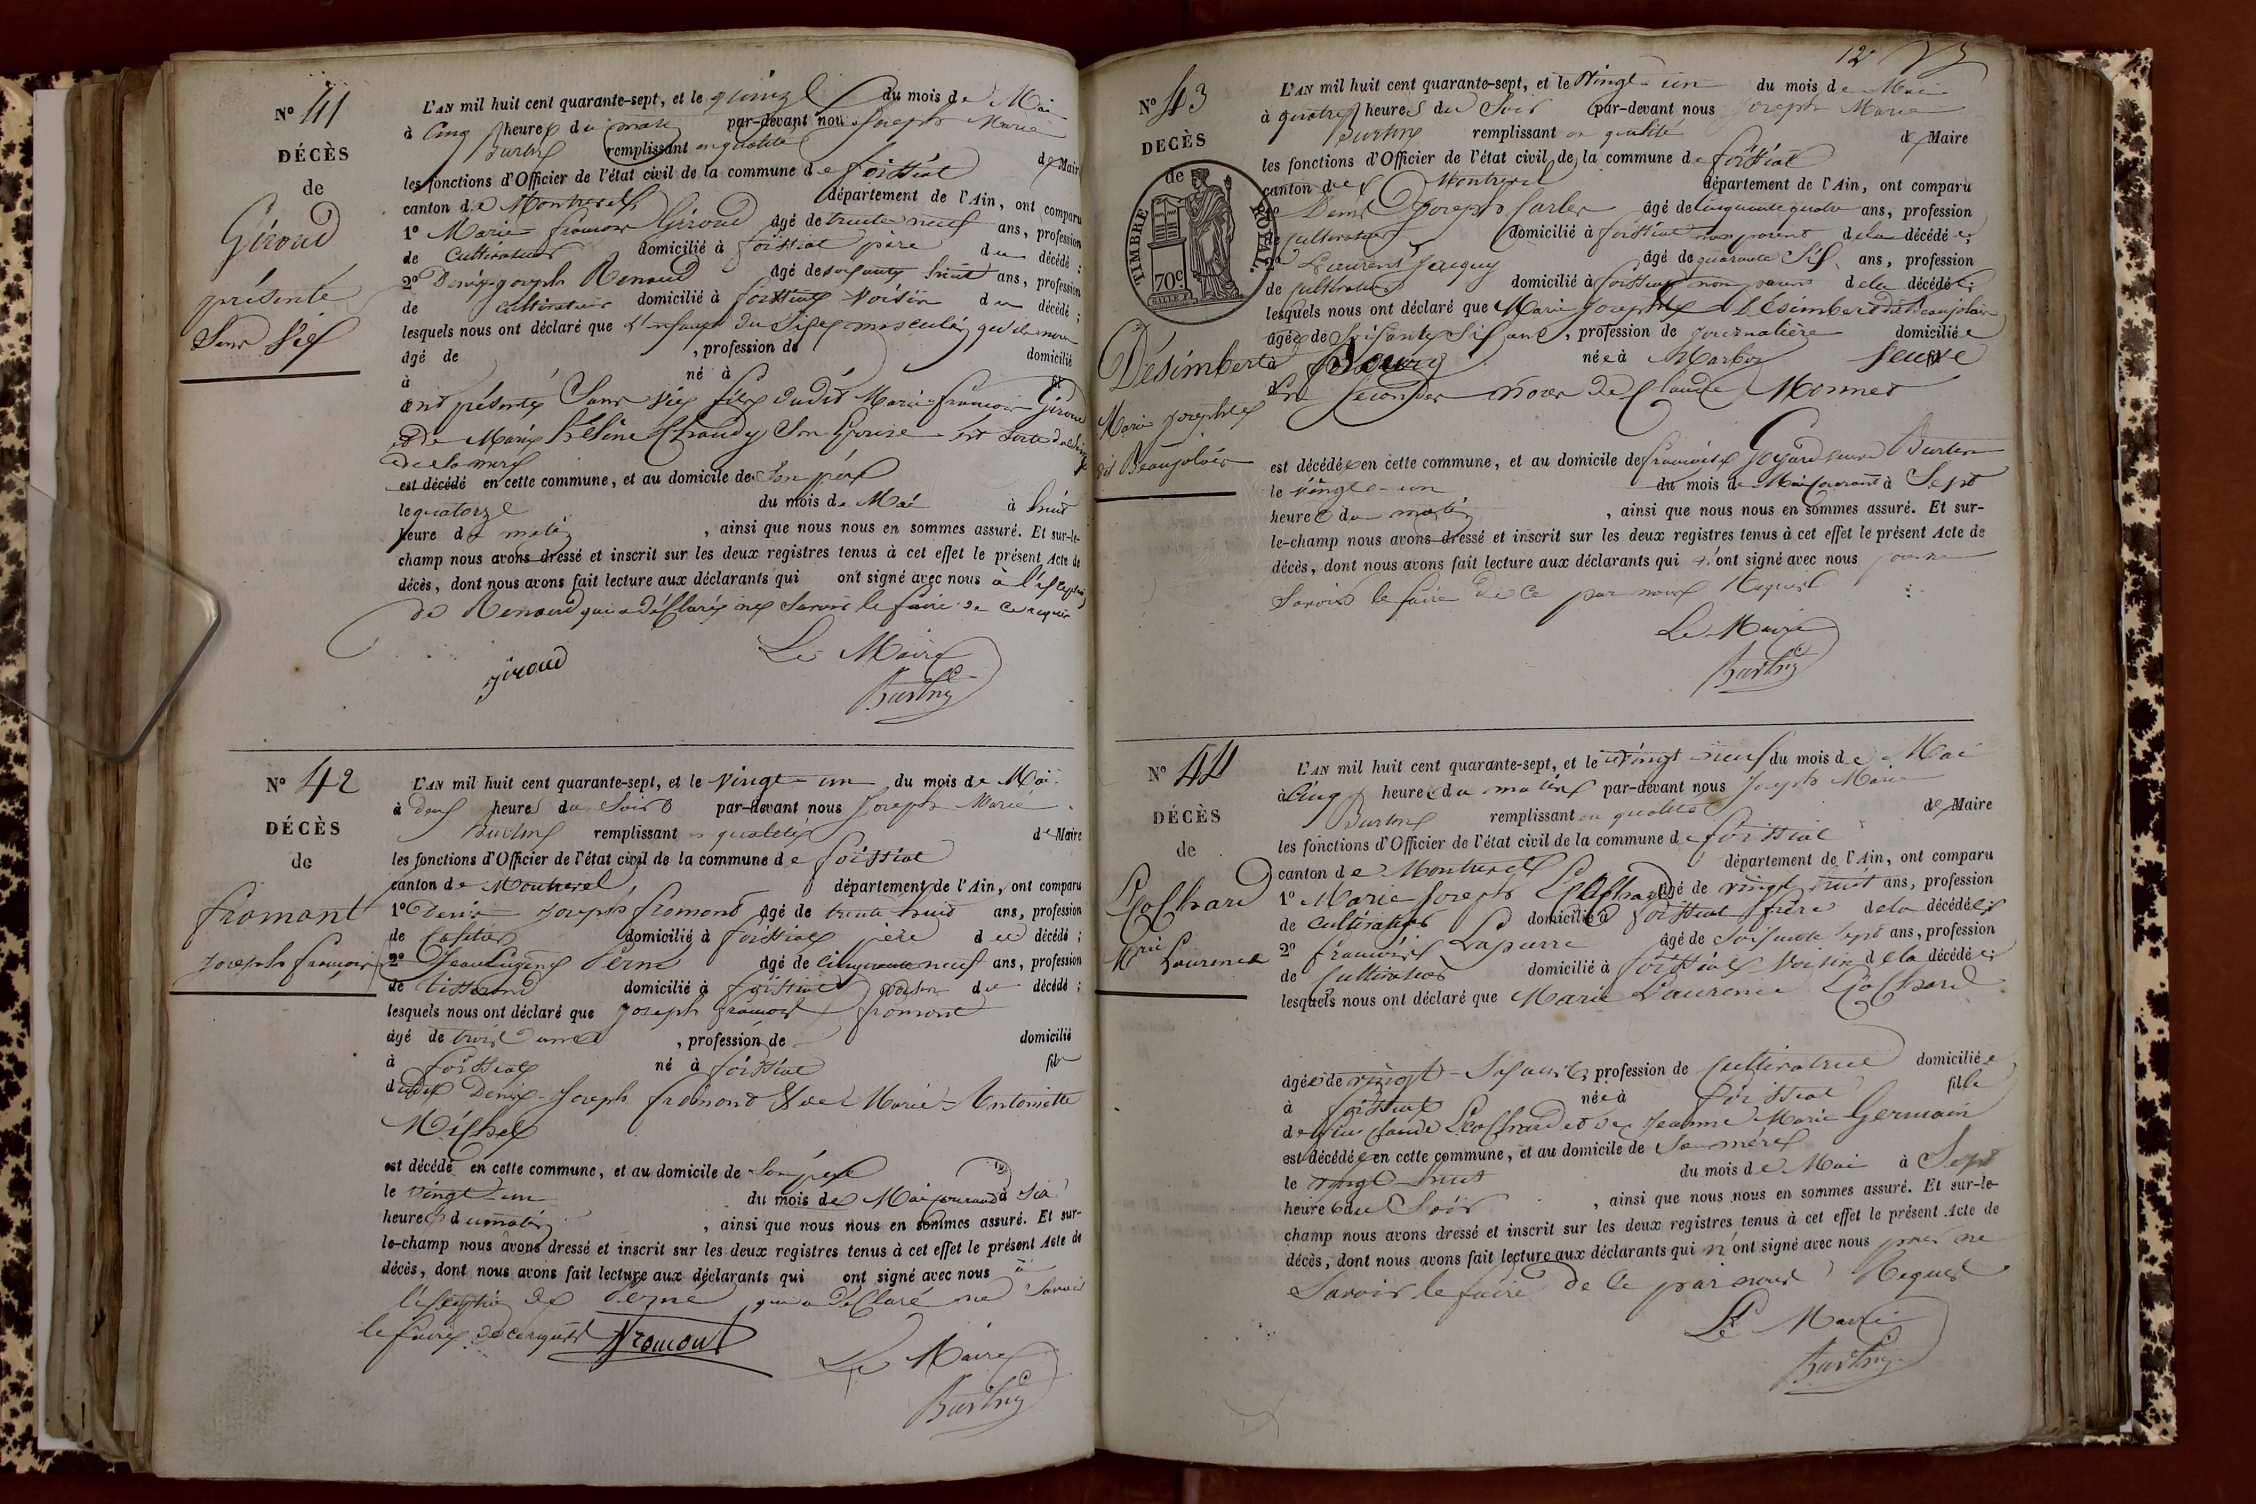 N° 41
DÉCÈS
de
Giroud
présenté
Sans Vie
L'AN mil huit cent quarante-sept, et le quinze du mois de Mai
à Cinq heures du matin par-devant nous Joseph Marie
remplissant en qualité de Maire
les fonctions d'Officier de l'état civil de la commune de foissiat
canton de Montrevel département de l'Ain, ont comparu
1° Marie françois Giroud âgé de trente neuf ans, profession
de Cultivateur domicilié à foissiat père du décédé ;
2° Denis joseph Renaud âgé de soixante huit ans, profession
de cultivateur domicilié à foissiat Voisin du décédé ;
lesquels nous ont déclaré que l'enfant du sexe masculin qu'ils nous
âgé de , profession de domicilié
à né à
ont présenté Sans Vie fils dudit Marie françois Giroud
et de Marie hélène Chaudy Son Epouse est sorti du
de la mère
est décédé en cette commune, et au domicile de Son père
le quatorze du mois de Mai à huit
heure du matin , ainsi que nous nous en sommes assuré. Et sur-le-
champ nous avons dressé et inscrit sur les deux registres tenus à cet effet le présent Acte de
décès, dont nous avons fait lecture aux déclarants qui ont signé avec nous à l'exception
de Renaud qui a déclaré ne Savoir le faire de ce requis
giroud
Le Maire
N° 42
DÉCÈS
de
fromont
joseph françois
L'AN mil huit cent quarante-sept, et le Vingt-un du mois de Mai
à deux heures du Soir par-devant nous Joseph Marie
remplissant en qualité de Maire
les fonctions d'Officier de l'état civil de la commune de foissiat
canton de Montrevel département de l'Ain, ont comparu
1° Denis joseph fromont âgé de trente huit ans, profession
de domicilié à foissiat père du décédé ;
2° Jean Eugène Perne âgé de Cinquante neuf ans, profession
de tisserand domicilié à foissiat voisin du décédé ;
lesquels nous ont déclaré que joseph françois fromont
âgé de trois ans , profession de domicilié
à foissiat né à foissiat fils
dudit Denis Joseph fromont & de Marie-Antoinette
Michel
est décédé en cette commune, et au domicile de Son père
le Vingt-un du mois de Mai courant à Six
heures du matin , ainsi que nous nous en sommes assuré. Et sur-
le-champ nous avons dressé et inscrit sur les deux registres tenus à cet effet le présent Acte de
décès, dont nous avons fait lecture aux déclarants qui ont signé avec nous à
l'exception de Perne qui a déclaré ne Savoir
le faire de ce requis fromont
Le Maire
12
N° 43
DECÈS
de
TIMBRE ROYAL.
70c
Désimbert
Marie josephte
dit Beaujolais
L'AN mil huit cent quarante-sept, et le Vingt-un du mois de Mai
à quatre heures du Soir par-devant nous Joseph Marie
remplissant en qualité de Maire
les fonctions d'Officier de l'état civil de la commune de foissiat
canton de Montrevel département de l'Ain, ont comparu
1° Denis Joseph Carler âgé de Cinquante quatre ans, profession
de cultivateur domicilié à foissiat non parent de la décédée ;
2° Laurent Jacquy âgé de quarante Six ans, profession
de cultivateur domicilié à foissiat non parent de la décédée ;
lesquels nous ont déclaré que Marie Josephte Désimbert dit Beaujolais
âgée de Soixante Six ans, profession de journalière domiciliée
à née à Marboz Veuve
En Secondes Noces de Claude Monnet
est décédée en cette commune, et au domicile de françoise Goyard veuve
le vingt-un du mois de Mai courant à Sept
heures du matin , ainsi que nous nous en sommes assuré. Et sur-
le-champ nous avons dressé et inscrit sur les deux registres tenus à cet effet le présent Acte de
décès, dont nous avons fait lecture aux déclarants qui n'ont signé avec nous pour ne
Savoir le faire de ce par nous Requis
Le Maire
N° 44
DÉCÈS
de
Marie
Laurence
L'AN mil huit cent quarante-sept, et le Vingt neuf du mois de Mai
à Cinq heures du matin par-devant nous Joseph Marie
remplissant en qualité de Maire
les fonctions d'Officier de l'état civil de la commune de foissiat
canton de Montrevel département de l'Ain, ont comparu
1° Marie Joseph âgé de vingt huit ans, profession
de cultivateur domicilié à foissiat frère de la décédée
2° françois Lapierre âgé de Soixante Sept ans, profession
de Cultivateur domicilié à foissiat Voisin de la décédée ;
lesquels nous ont déclaré que Marie Laurence
âgée de vingt-Six ans, profession de Cultivatrice domiciliée
à foissiat née à foissiat fille
de feu Claude et de Jeanne Marie Germain
est décédée en cette commune, et au domicile de Sa mère
le vingt-huit du mois de Mai à Sept
heures du Soir , ainsi que nous nous en sommes assuré. Et sur-le-
champ nous avons dressé et inscrit sur les deux registres tenus à cet effet le présent Acte de
décès, dont nous avons fait lecture aux déclarants qui n'ont signé avec nous pour ne
Savoir le faire de Ce par nous Requis
Le Maire